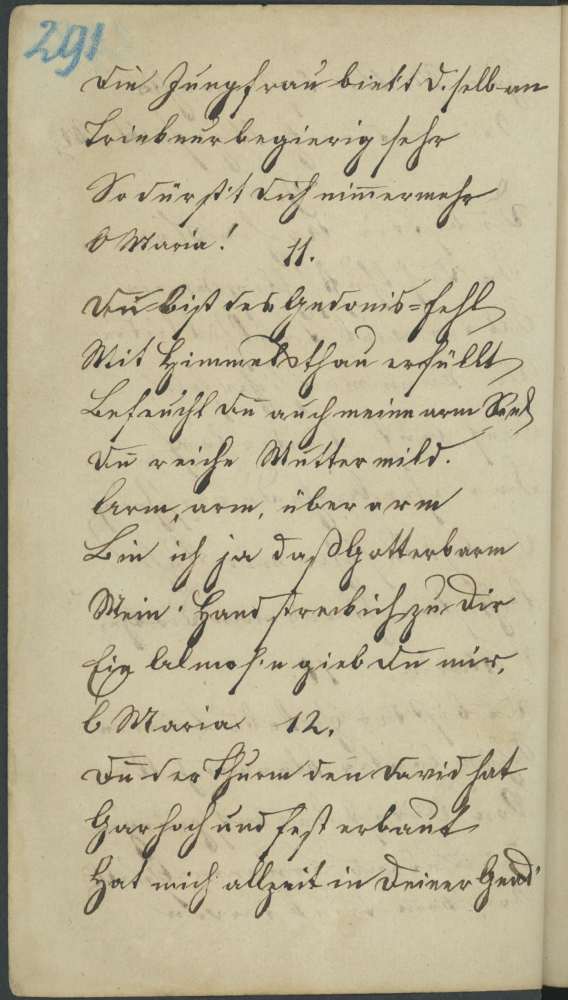 291
Die Jungfrau bieth't d. selb an
Trink nur begierig sehr
So dürst't dich nimmermehr
O Maria! 11.
Du bist des Gedonis=fehl
Mit Himmelsthau erfüllt
Befeucht du auch meine arm Seel
Du reiche Mutter mild.
Arm, arm, über arm
Bin ich ja daß Gott erbarm
Mein Hand streck ich zu dir
Ein Almos'n gieb du mir,
O Maria 12.
Du der Thurm den David hat
Gar hoch und fest erbaut
Hat mich allzeit in deiner Gnad'